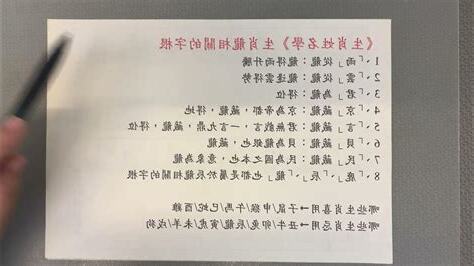 《生肖姓名學》生肖龍相關的字根
1、「雨」從龍：龍得雨升騰
2、「雲」從龍：龍逢雲得勢
3、「君」為龍：得位
4、「京」藏龍：京為帝都，藏龍，得地
5、「言」藏龍：君無戲言，一言九鼎，藏龍，得位
6、「貝」藏龍：貝為龍銀也，藏龍
7、「民」藏龍：民為國之本也，意象為龍
8、「鹿」、「辰」、「龍」都也是屬於辰龍相關的字根
哪些生肖喜用→子鼠/申猴/午馬/巳蛇/酉雞
哪些生肖忌用→丑牛/卯兔/辰龍/寅虎/未羊/戌狗